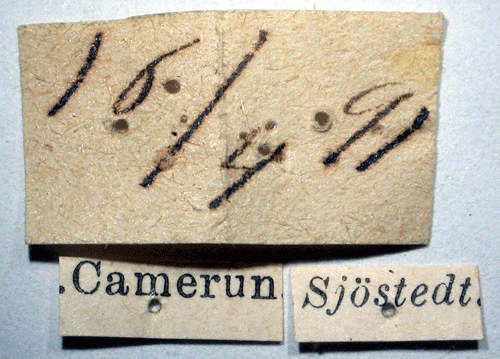 15/4 91
.Camerun.
Sjöstedt.